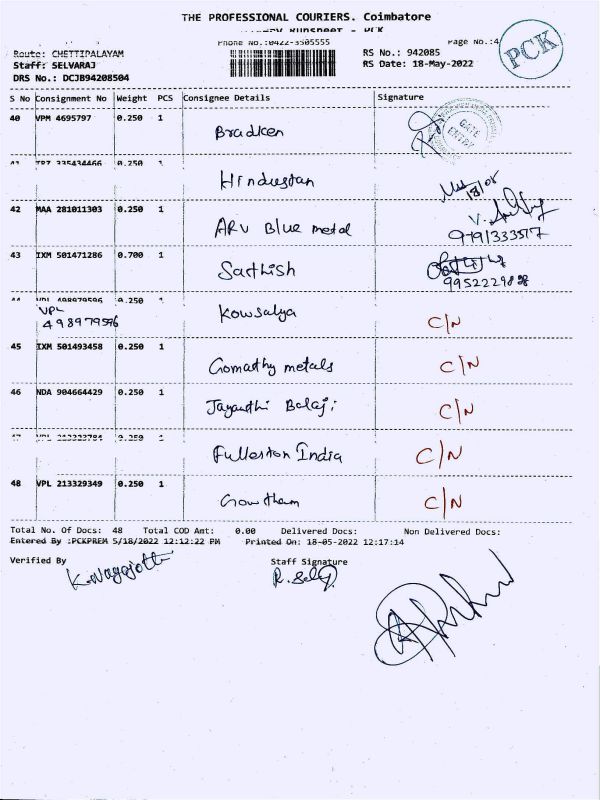 THE PROFESSIONAL COURIERS. Coimbatore
Runsheet - PCK
Phone No.:0422-3505555 Page No.:4
PCK
Route: CHETTIPALAYAM RS No.: 942085
Staff: SELVARAJ RS Date: 18-May-2022
DRS No.: DCJB94208504
S No Consignment No Weight PCS Consignee Details Signature
40 VPM 4695797 0.250 1 Bradken
GATE ENTRY
41 335434466 0.250 1 Hindustan
18/05
42 MAA 281011303 0.250 1 ARV Blue metal
43 IXM 501471286 0.700 1 Sathish
9952229898
44 VPL 498979596 0.250 1 Kowsalya C/N
VPL
498979596
45 IXM 501493458 0.250 1 Gomathy metals C/N
46 NDA 904664429 0.250 1 Jayanthi Balaji C/N
47 VPL 213323784 0.250 1 Fullerton India C/N
48 VPL 213329349 0.250 1 Gowtham C/N
Total No. Of Docs: 48 Total COD Amt: 0.00 Delivered Docs: Non Delivered Docs:
Entered By :PCKPREM 5/18/2022 12:12:22 PM Printed On: 18-05-2022 12:17:14
Verified By Staff Signature